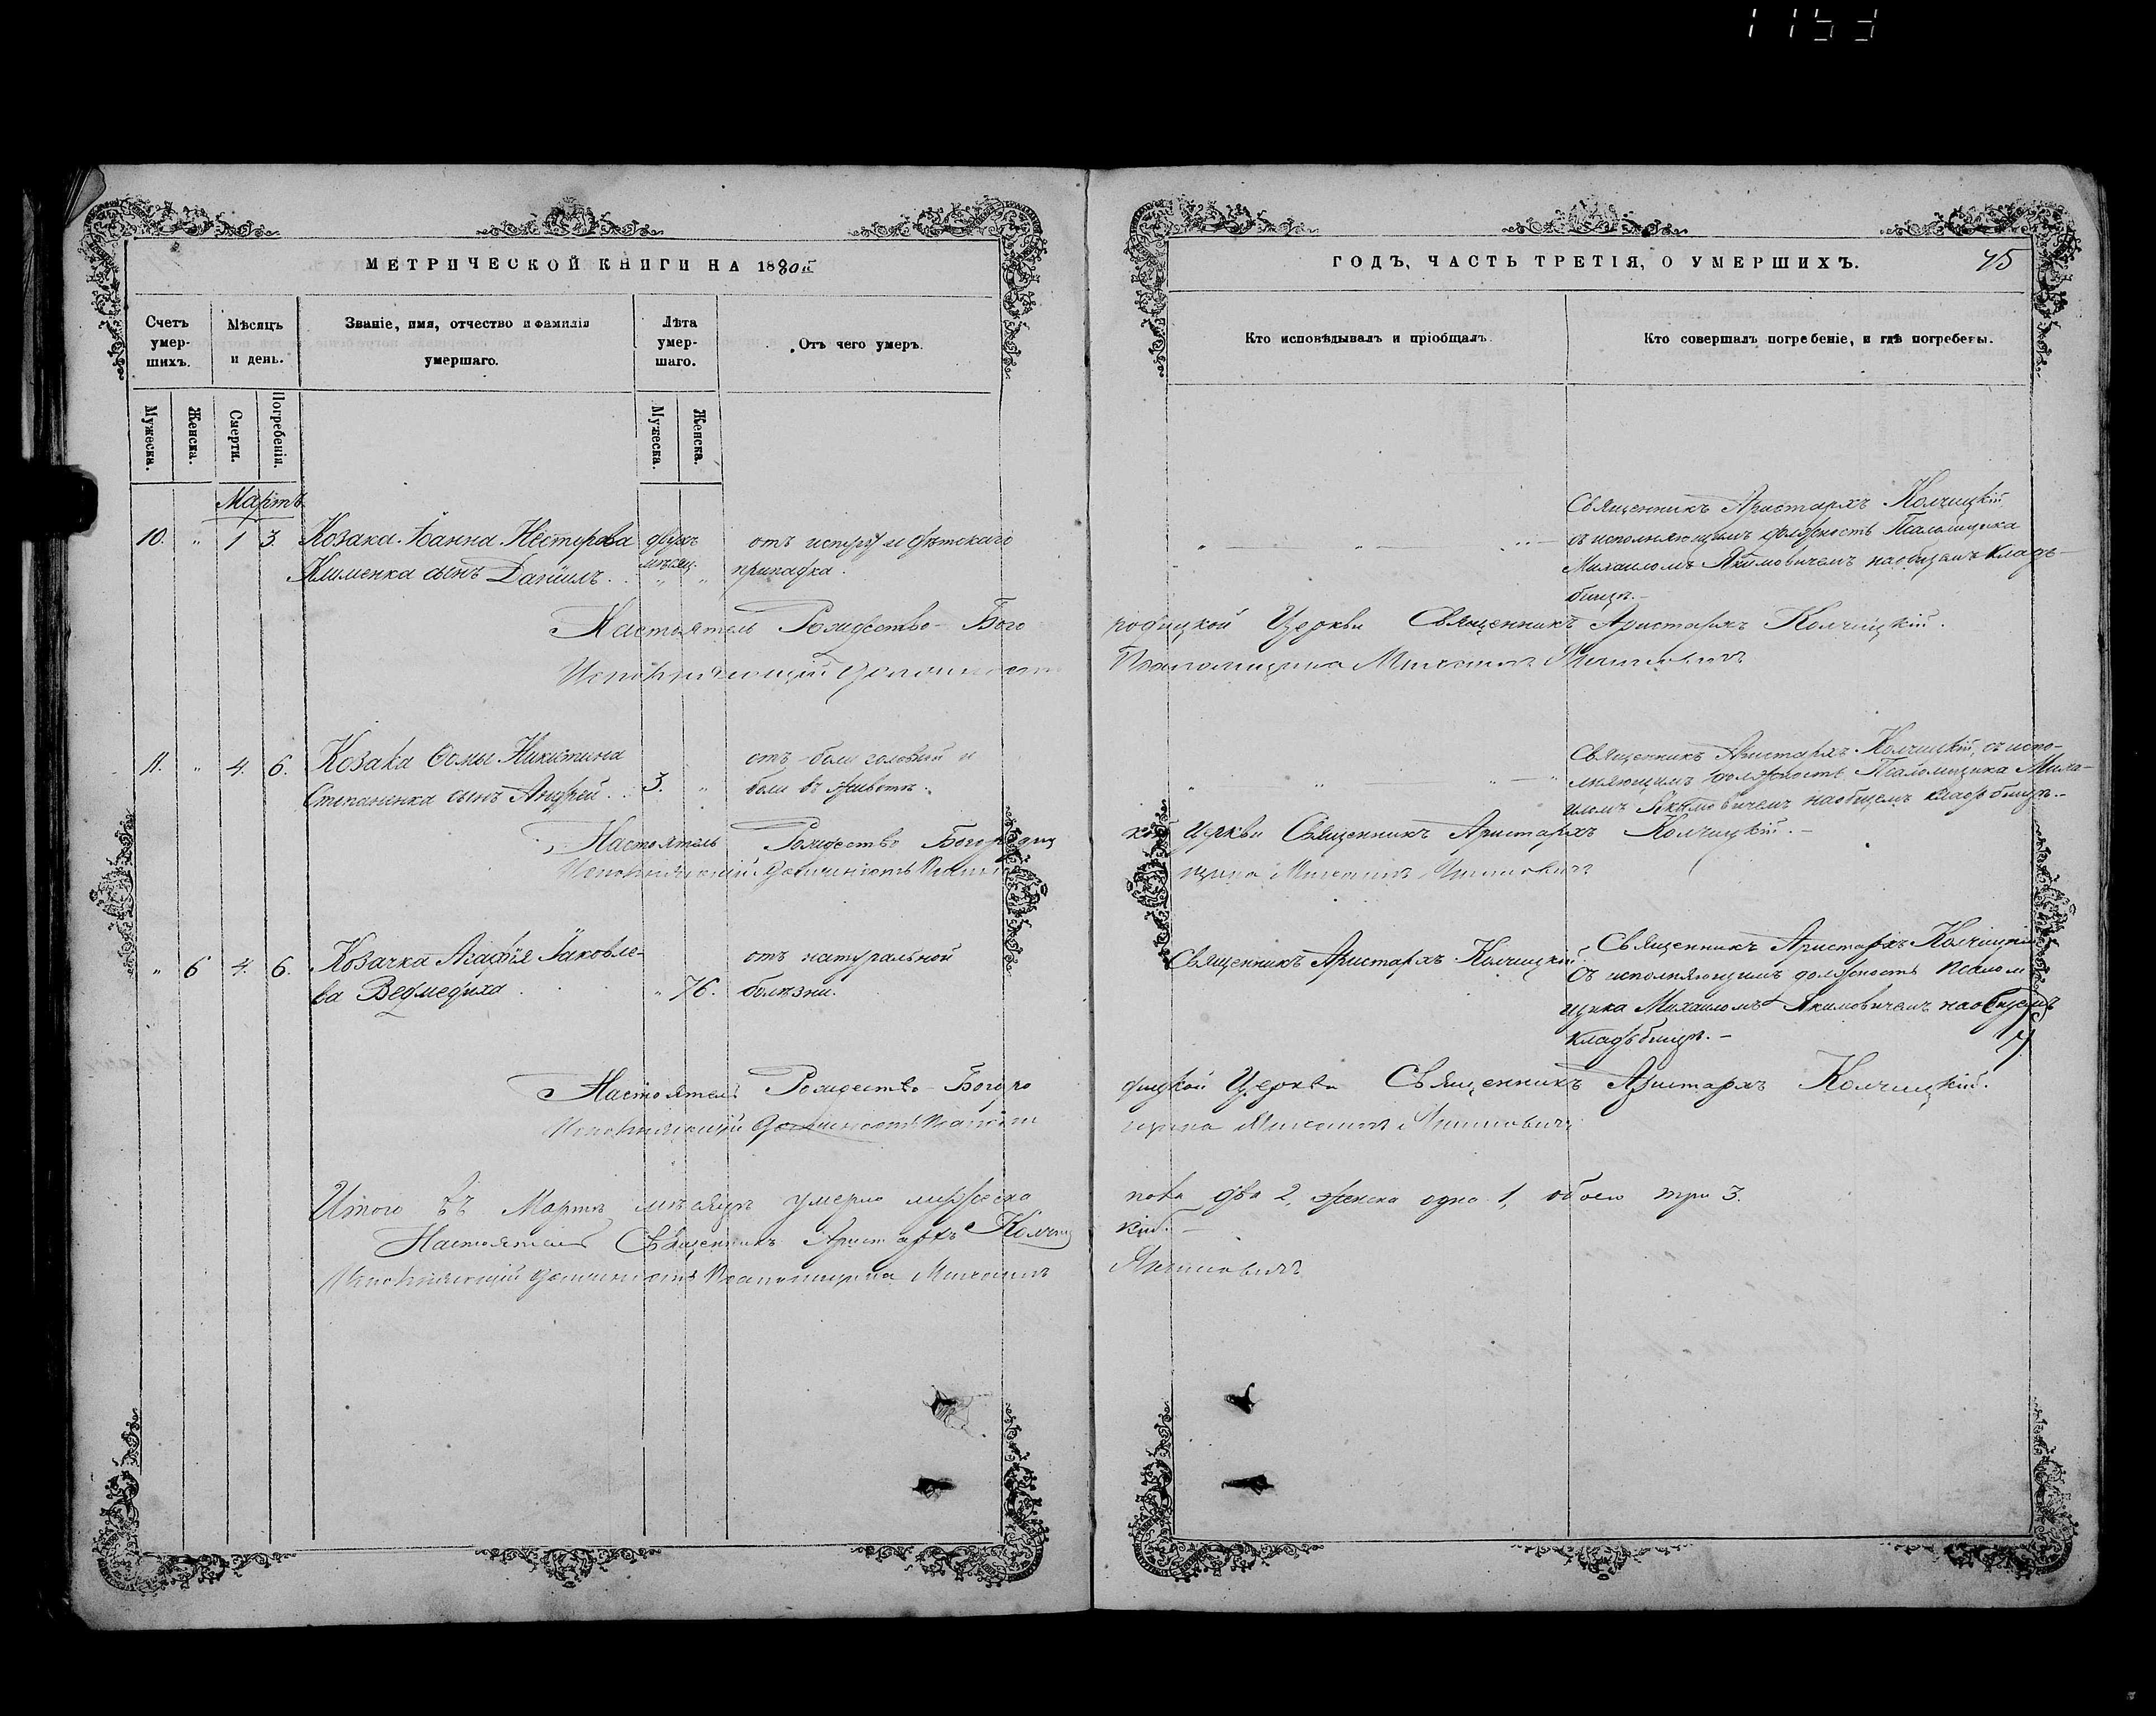 1153
МЕТРИЧЕСКОЙ КНИГИ НА 1880й
Счетъ умер- шихъ.
Мѣсяцъ и день.
Званіе, имя, отчество и фамилія умершаго.
Лѣта умер- шаго.
Отъ чего умеръ.
Мужеска.
Женска.
Смерти.
Погребенія.
Мужеска.
Женска.
Мартъ
10. " 1 3. Козака Іоанна Нестерова двухъ отъ испугу и дѣтскаго
Клименка сынъ Даніилъ. мѣсяц. " припадка.
Настоятель Рождество-Бого
Исполняющій должность
11. " 4. 6. Козака Ѳомы Никитина отъ боли головной и
Степаненка сынъ Андрей. 3. " боли въ животѣ.
Настоятель Рождество Богородиц
Исполняющій должность Псалом
" 6 4. 6. Козачка Агафія Іаковле- отъ натуральной
ва Ведмедиха " 76. болѣзни.
Настоятель Рождество-Богоро
Исполняющій должность Псалом
Итого въ Мартѣ мѣсяцѣ умерло мужеска
Настоятель Священникъ Аристархъ Колчиц
Исполняющій должность Псаломщика Михаилъ
ГОДЪ, ЧАСТЬ ТРЕТІЯ, О УМЕРШИХЪ. 45
Кто исповѣдывалъ и пріобщалъ.
Кто совершалъ погребеніе, и гдѣ погребены.
Священникъ Аристархъ Колчицкій
съ исполняющимъ должность Псаломщика
Михаиломъ Якимовичемъ на общемъ кладъ-
бищѣ.-
родицкой Церкви Священникъ Аристархъ Колчицкій.
Псаломщика Михаилъ Якимовичъ
Священникъ Аристархъ Колчицкій, съ испо-
лняющимъ должность Псаломщика Миха-
иломъ Якимовичемъ на общемъ кладбищѣ.-
кой Церкви Священникъ Аристархъ Колчицкій.-
щика Михаилъ Якимовичъ
Священникъ Аристархъ Колчицкій. Священникъ Аристархъ Колчицкій
Съ исполняющимъ должность Псалом
щика Михаиломъ Якимовичемъ на общемъ
кладъбищѣ.-
дицкой Церкви Священникъ Аристархъ Колчицкій.
щика Михаилъ Якимовичъ
пола два 2, женска одна 1, обоего три 3.
кій.-
Якимовичъ